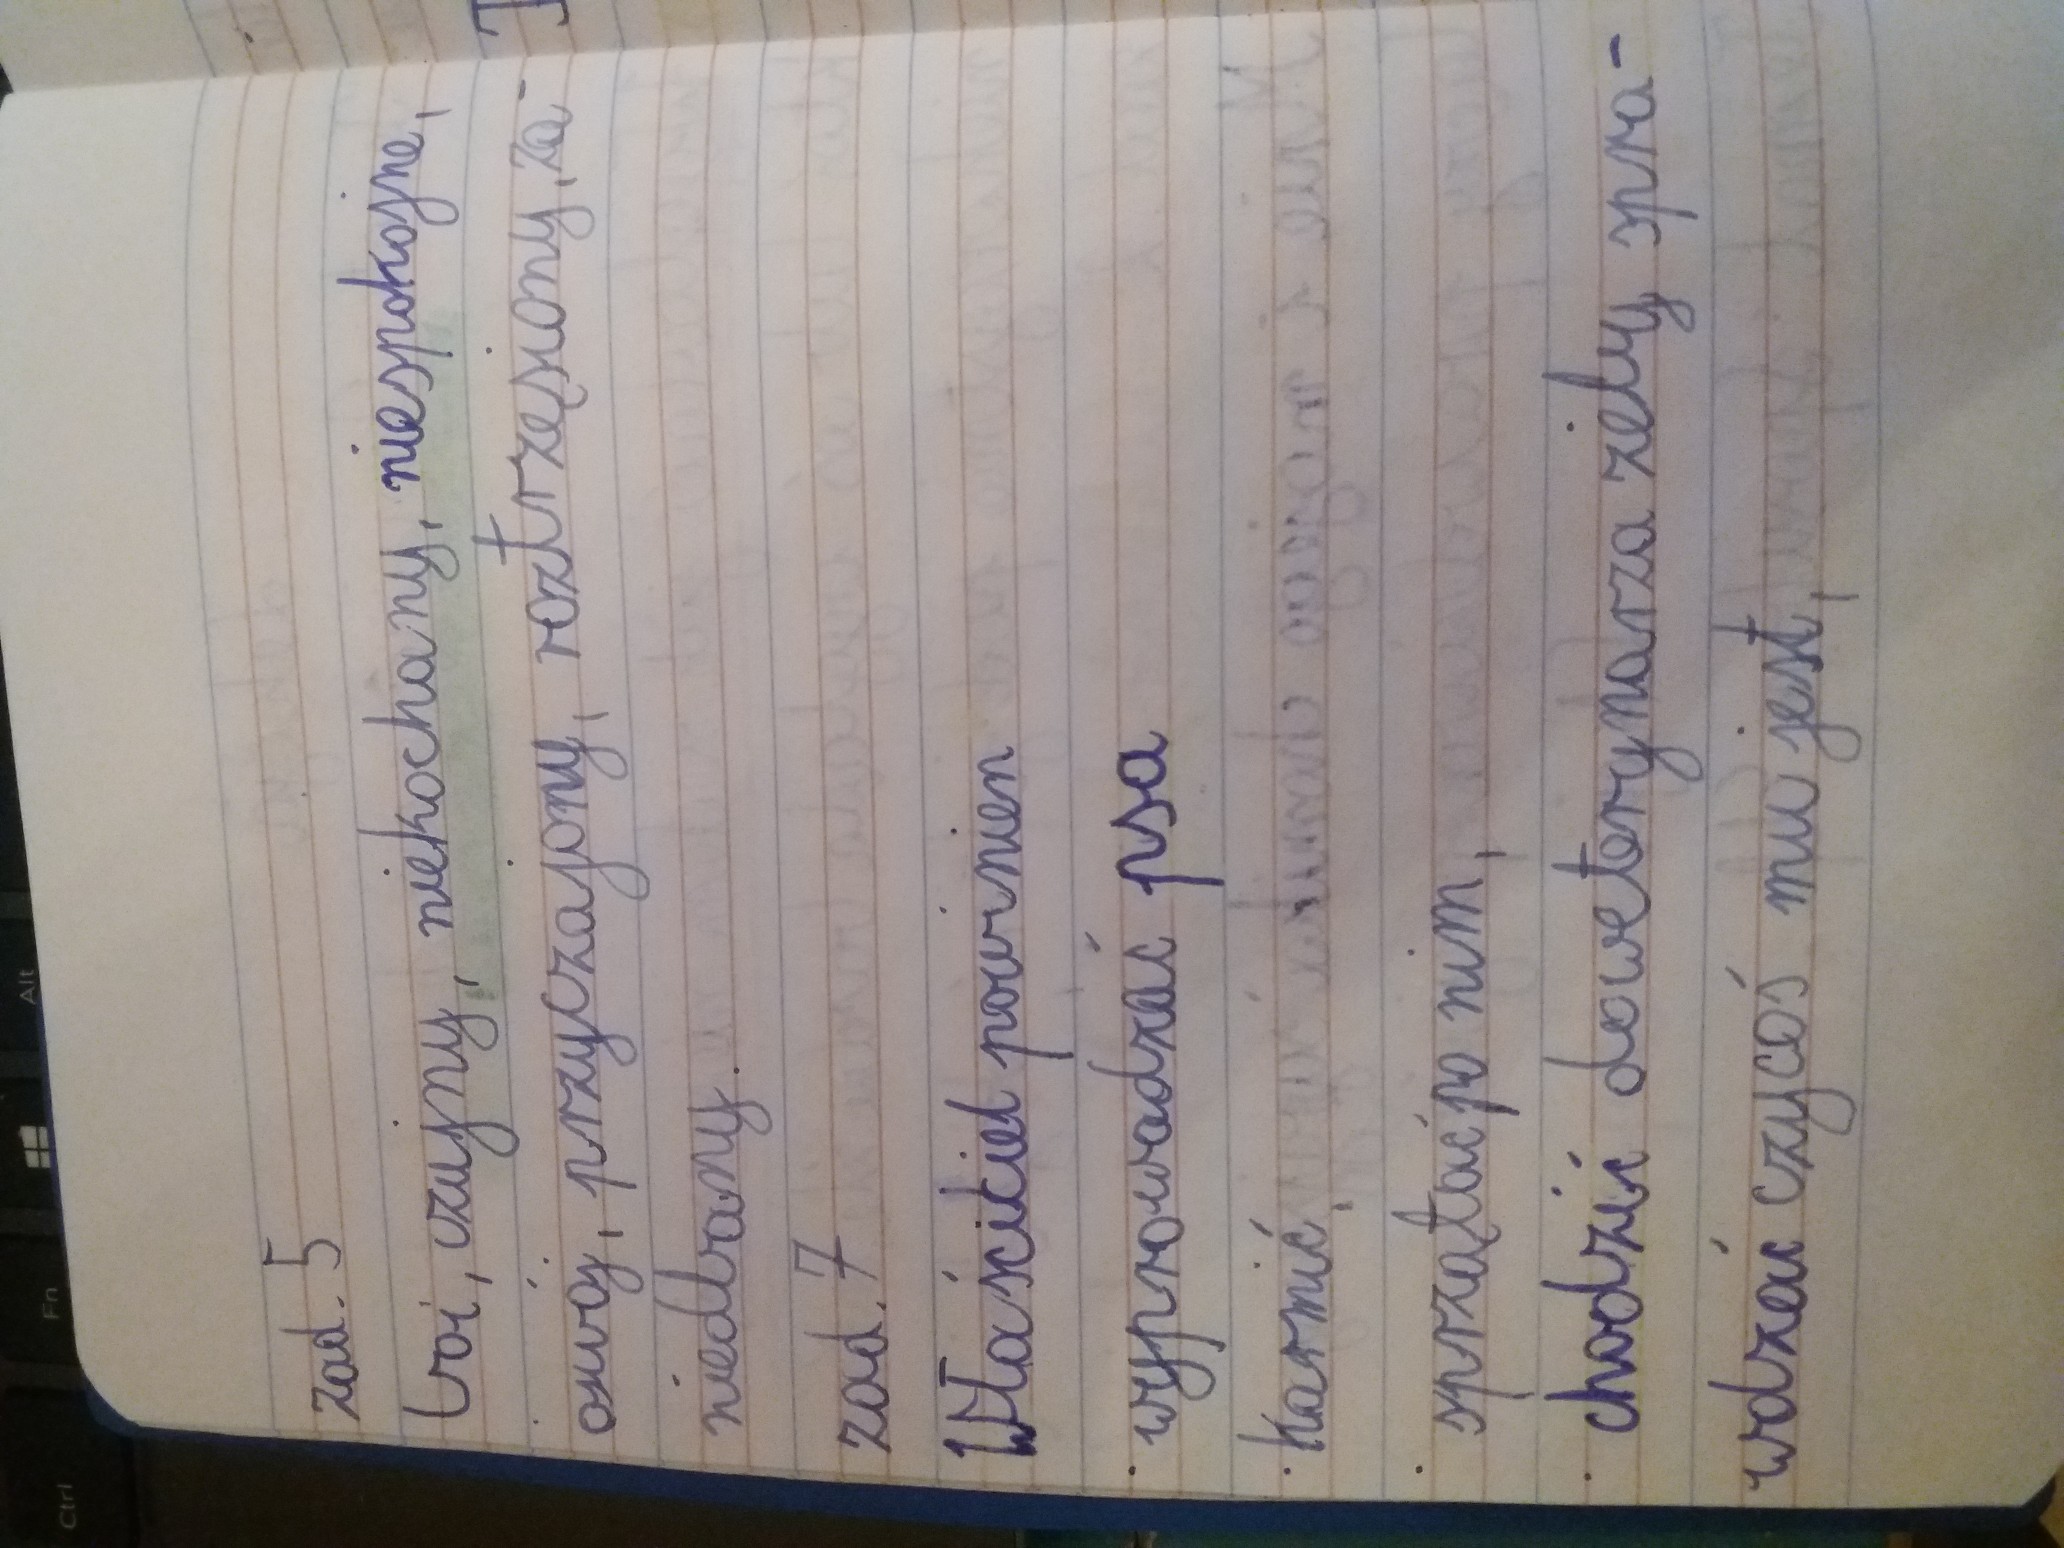 zad. 5
czujny, niekochany, niespokojne,
oswój, przyczajony, roztrzęsiony, za-
niedbany.
zad. 7
Właściciel powinien
• wyprowadzać psa
• karmić,
• sprzątać po nim,
• chodzić do weterynarza żeby spra-
wdzać czy coś mu jest,
Ctrl
Fn
Alt